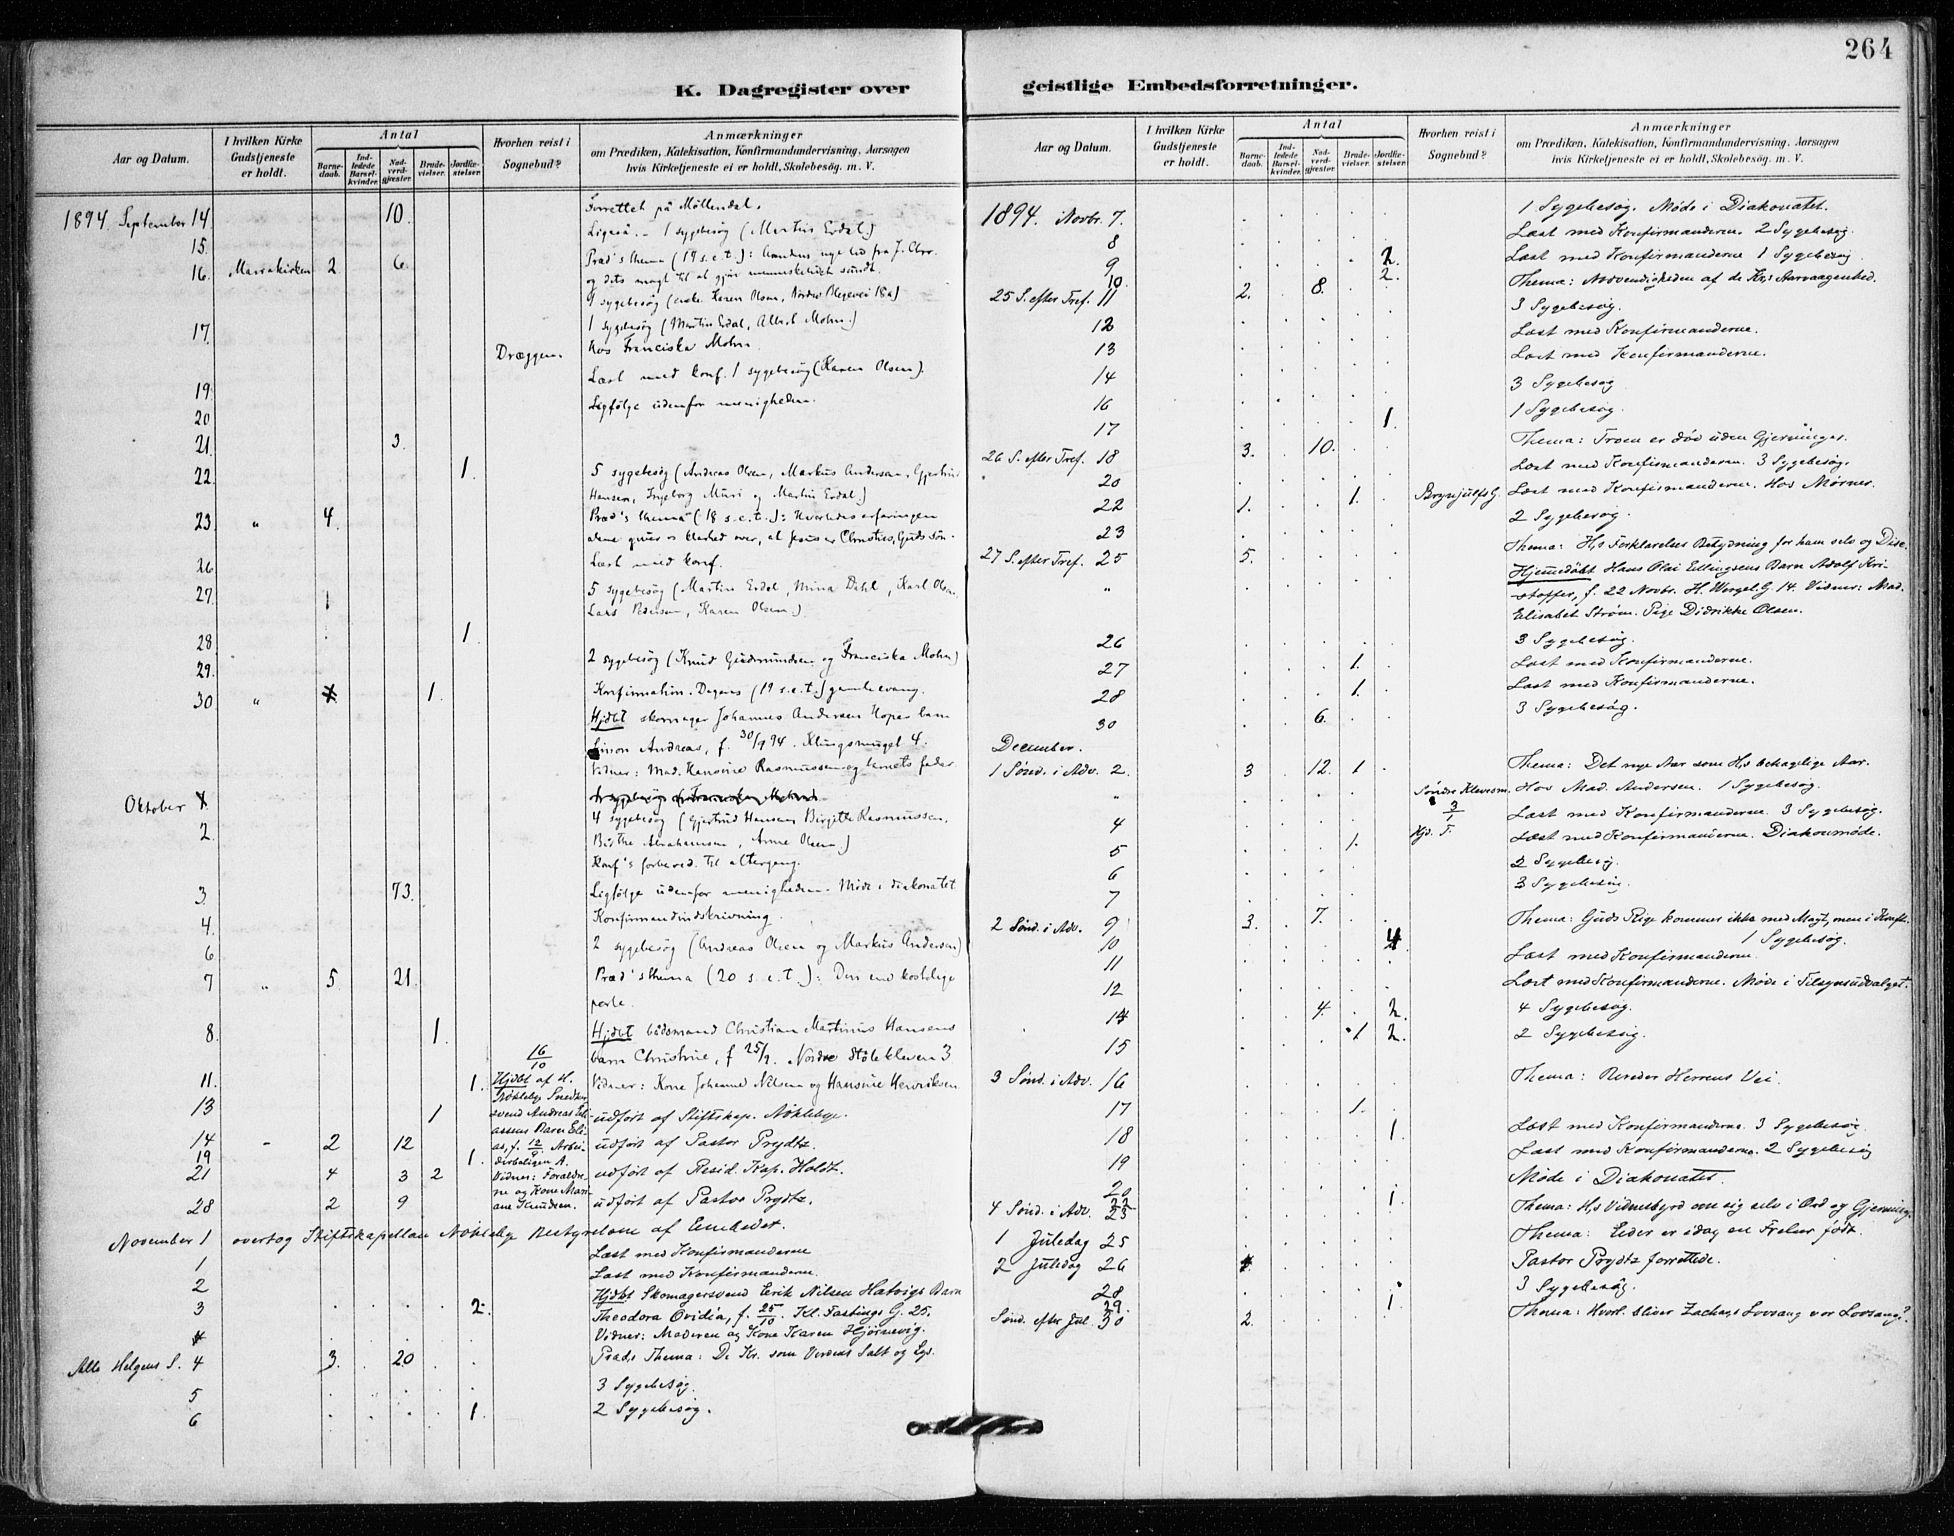 264
K. Dagregister over geistlige Embedsforretninger.
Aar og Datum.
I hvilken Kirke Gudstjeneste er holdt.
Antal
Barnedaab.
Indledede Barselkvinder.
Nadverdgjæster.
Brudevielser.
Jordfæstelser.
Hvorhen reist i Sognebud?
Anmærkninger
om Prædiken, Katekisation, Konfirmandundervisning, Aarsagen
hvis Kirketjeneste ei er holdt, Skolebesög m. V.
1894 September 14 10. Forrettet på Möllendal.
15. Ligeså. - 1 sygebesög (Martin Erdal)
16. Mariakirken 2 6. Præd's thema (17 s.e.t.):
og dets magt til at gjör menneskelivet sundt.
1 sygebesög (Martin Erdal, Mohn.)
17. Dræggen. hos Franciska Mohn
Læst med konf. 1 sygebesög (Karen Olsen).
19. Ligfölge udenfor menigheden.
20
21. 3
22. 1 5 sygebesög (Andreas Olsen, Markus Andersen, Gjertrud
Hansen, Ingeborg Muri og Martin Erdal)
23 " 4. Præd's thema (18 s.e.t.): Hvorledes erfaringen
alene giver os klarhed over, at Jesus er Christus, Guds sön.
26 Læst med konf.
27. 1 5 sygebesög (Martin Erdal, Mina Dahl, Karl Olsen,
Lars Pedersen, Karen Olsen.)
28 1.
29. 2 sygebesög (Knud Gudmundsen og Franciska Mohn)
30 " 1. Konfirmation. Dagens (19 s.e.t.) gamle evang.
Hjdbt skomager Johannes Andersen Hopes barn
Simon Andreas, f. 30/9 94. Klingsmuget 4.
Vidner: Mad. Hansine Rasmussen og barnets fader
Oktober 1
2. 4 sygebesög (Gjertrud Hansen, Birgitte Rasmussen,
Birthe Abrahamsen, Anne Olsen)
Konf's forbered. til altergang.
3. 73. Ligfölge udenfor menigheden. Möde i diakonatet
4. Konfirmandindskrivning.
6 2 sygebesög (Andreas Olsen og Markus Andersen)
7 " 5 21. Præd's thema (20 s.e.t.): Den ene kostelige
perle.
8. 1 Hjdbt bådsmand Christian Martinus Hansens
barn Christine, f 25/9. Nordre Stölekleven 3
11. 1. Vidner: Kone Johanne Nilsen og Hansine Henriksen
16/10
Hjdbt af H.
Nökleby Snedker-
svend Andreas Eli-
assens Barn Eli-
as, f. 12/9 Arbei-
derboligen A.
Vidner: Forældre-
ne og Kone Mari-
ane Knudsen.
13 1 udfört af Stiftskap. Nökleby.
14 - 2 12 udfört af Pastor Prydtz.
19 1.
21 4 3 2 udfört af Resid. Kap. Holdt.
28 2 9 udfört af Pastor Prydtz.
November 1 overtog Stiftskapellan Nökleby Bestyrelsen af Embedet.
1 Læst med Konfirmanderne
2 Læst med Konfirmanderne.
3 2. Hjdbt Skomagersvend Erik Nilsen Hatvigs Barn
Theodora Ovidia, f. 25/10. Kl. Fastings G. 25.
4 Vidner: Moderen og Kone Karen Hjörnevig.
Alle Helgens S. 4 3. 20 Præds Thema: De Kr. som Verdens Salt og Lys.
5 3 Sygebesög.
6 1 2 Sygebesög.
Aar og Datum.
I hvilken Kirke Gudstjeneste er holdt.
Antal
Barnedaab.
Indledede Barselkvinder.
Nadverdgjæster.
Brudevielser.
Jordfæstelser.
Hvorhen reist i Sognebud?
Anmærkninger
om Prædiken, Katekisation, Konfirmandundervisning, Aarsagen
hvis Kirketjeneste ei er holdt, Skolebesög m. V.
1894. Novbr. 7. 1 Sygebesög. Möde i Diakonatet.
8 Læst med Konfirmanderne. 2 Sygebesög.
9 2. Læst med Konfirmanderne 1 Sygebesög
10. 2.
25 S. efter Tref. 11 2. 8. Thema: Nödvendigheden af de Krs Aarvaagenhed.
12 3 Sygebesög.
13 Læst med Konfirmanderne.
14 Læst med Konfirmanderne.
16 3 Sygebesög
17 1. 1 Sygebesög.
26 S. efter Tref. 18 3. 10. Thema: Troen er död uden Gjerninger.
20 Læst med Konfirmanderne. 3 Sygebesög.
22 1. 1. Brynjulfs G. Læst med Konfirmanderne. Hos Mörner.
23 2 Sygebesög.
27 S. efter Tref. 25 5. Thema: Hs Forklarelses Betydning for ham selv og Disc.
" Hjemmedöbt Hans Olai Ellingsens Barn Adolf Kri-
stoffer, f. 22 Novbr. H. Wergel. G. 14. Vidner: Mad.
Elisabet Ström. Pige Didrikke Olsen.
26 3 Sygebesög.
27 1. Læst med Konfirmanderne.
28 1. Læst med Konfirmanderne.
30 6. 3 Sygebesög.
December.
1 Sönd. i Adv. 2. 3 12. 1 Thema: Det nye Aar som Hs behagelige Aar.
" Söndre Klevesm. Hos Mad. Andersen. 1 Sygebesög.
4 Læst med Konfirmanderne. 3 Sygebesög.
5 1. Læst med Konfirmanderne. Diakonmöde.
6 2 Sygebesög.
7 3 Sygebesög.
2 Sönd. i Adv. 9 3. 7. Thema: Guds Rige kommer ikke med Magt, men i Kraft.
10 4. 1 Sygebesög.
11 Læst med Konfirmanderne.
12 Læst med Konfirmanderne. Möde i Tilsynsudvalget.
14 4. 2. 4 Sygebesög.
15 1 2. 2 Sygebesög.
3 Sönd. i Adv. 16 Thema: Bereder Herrens Vei.
17 1.
18 1. Læst med Konfirmanderne. 3 Sygebesög.
19 Læst med Konfirmanderne. 2 Sygebesög
20 Möde i Diakonatet.
22 1.
4 Sönd. i Adv. 23 Thema: Hs Vidnesbyrd om sig selv i Ord og Gjerning.
1 Juledag 25 Thema: Eder er idag en Frelser födt.
2 Juledag 26 Pastor Prydtz forrettede.
28 3 Sygebesög.
29. 1
Sönd. efter Jul. 30 2. Thema: Hvorl. bliver Zacharias Lovsang vor Lovsang?